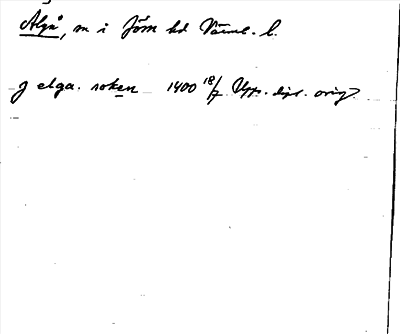 Älgå, sn i Jösse hd Värml. l.
j elga. soken 1400 18/7 Upps. dipl. orig.